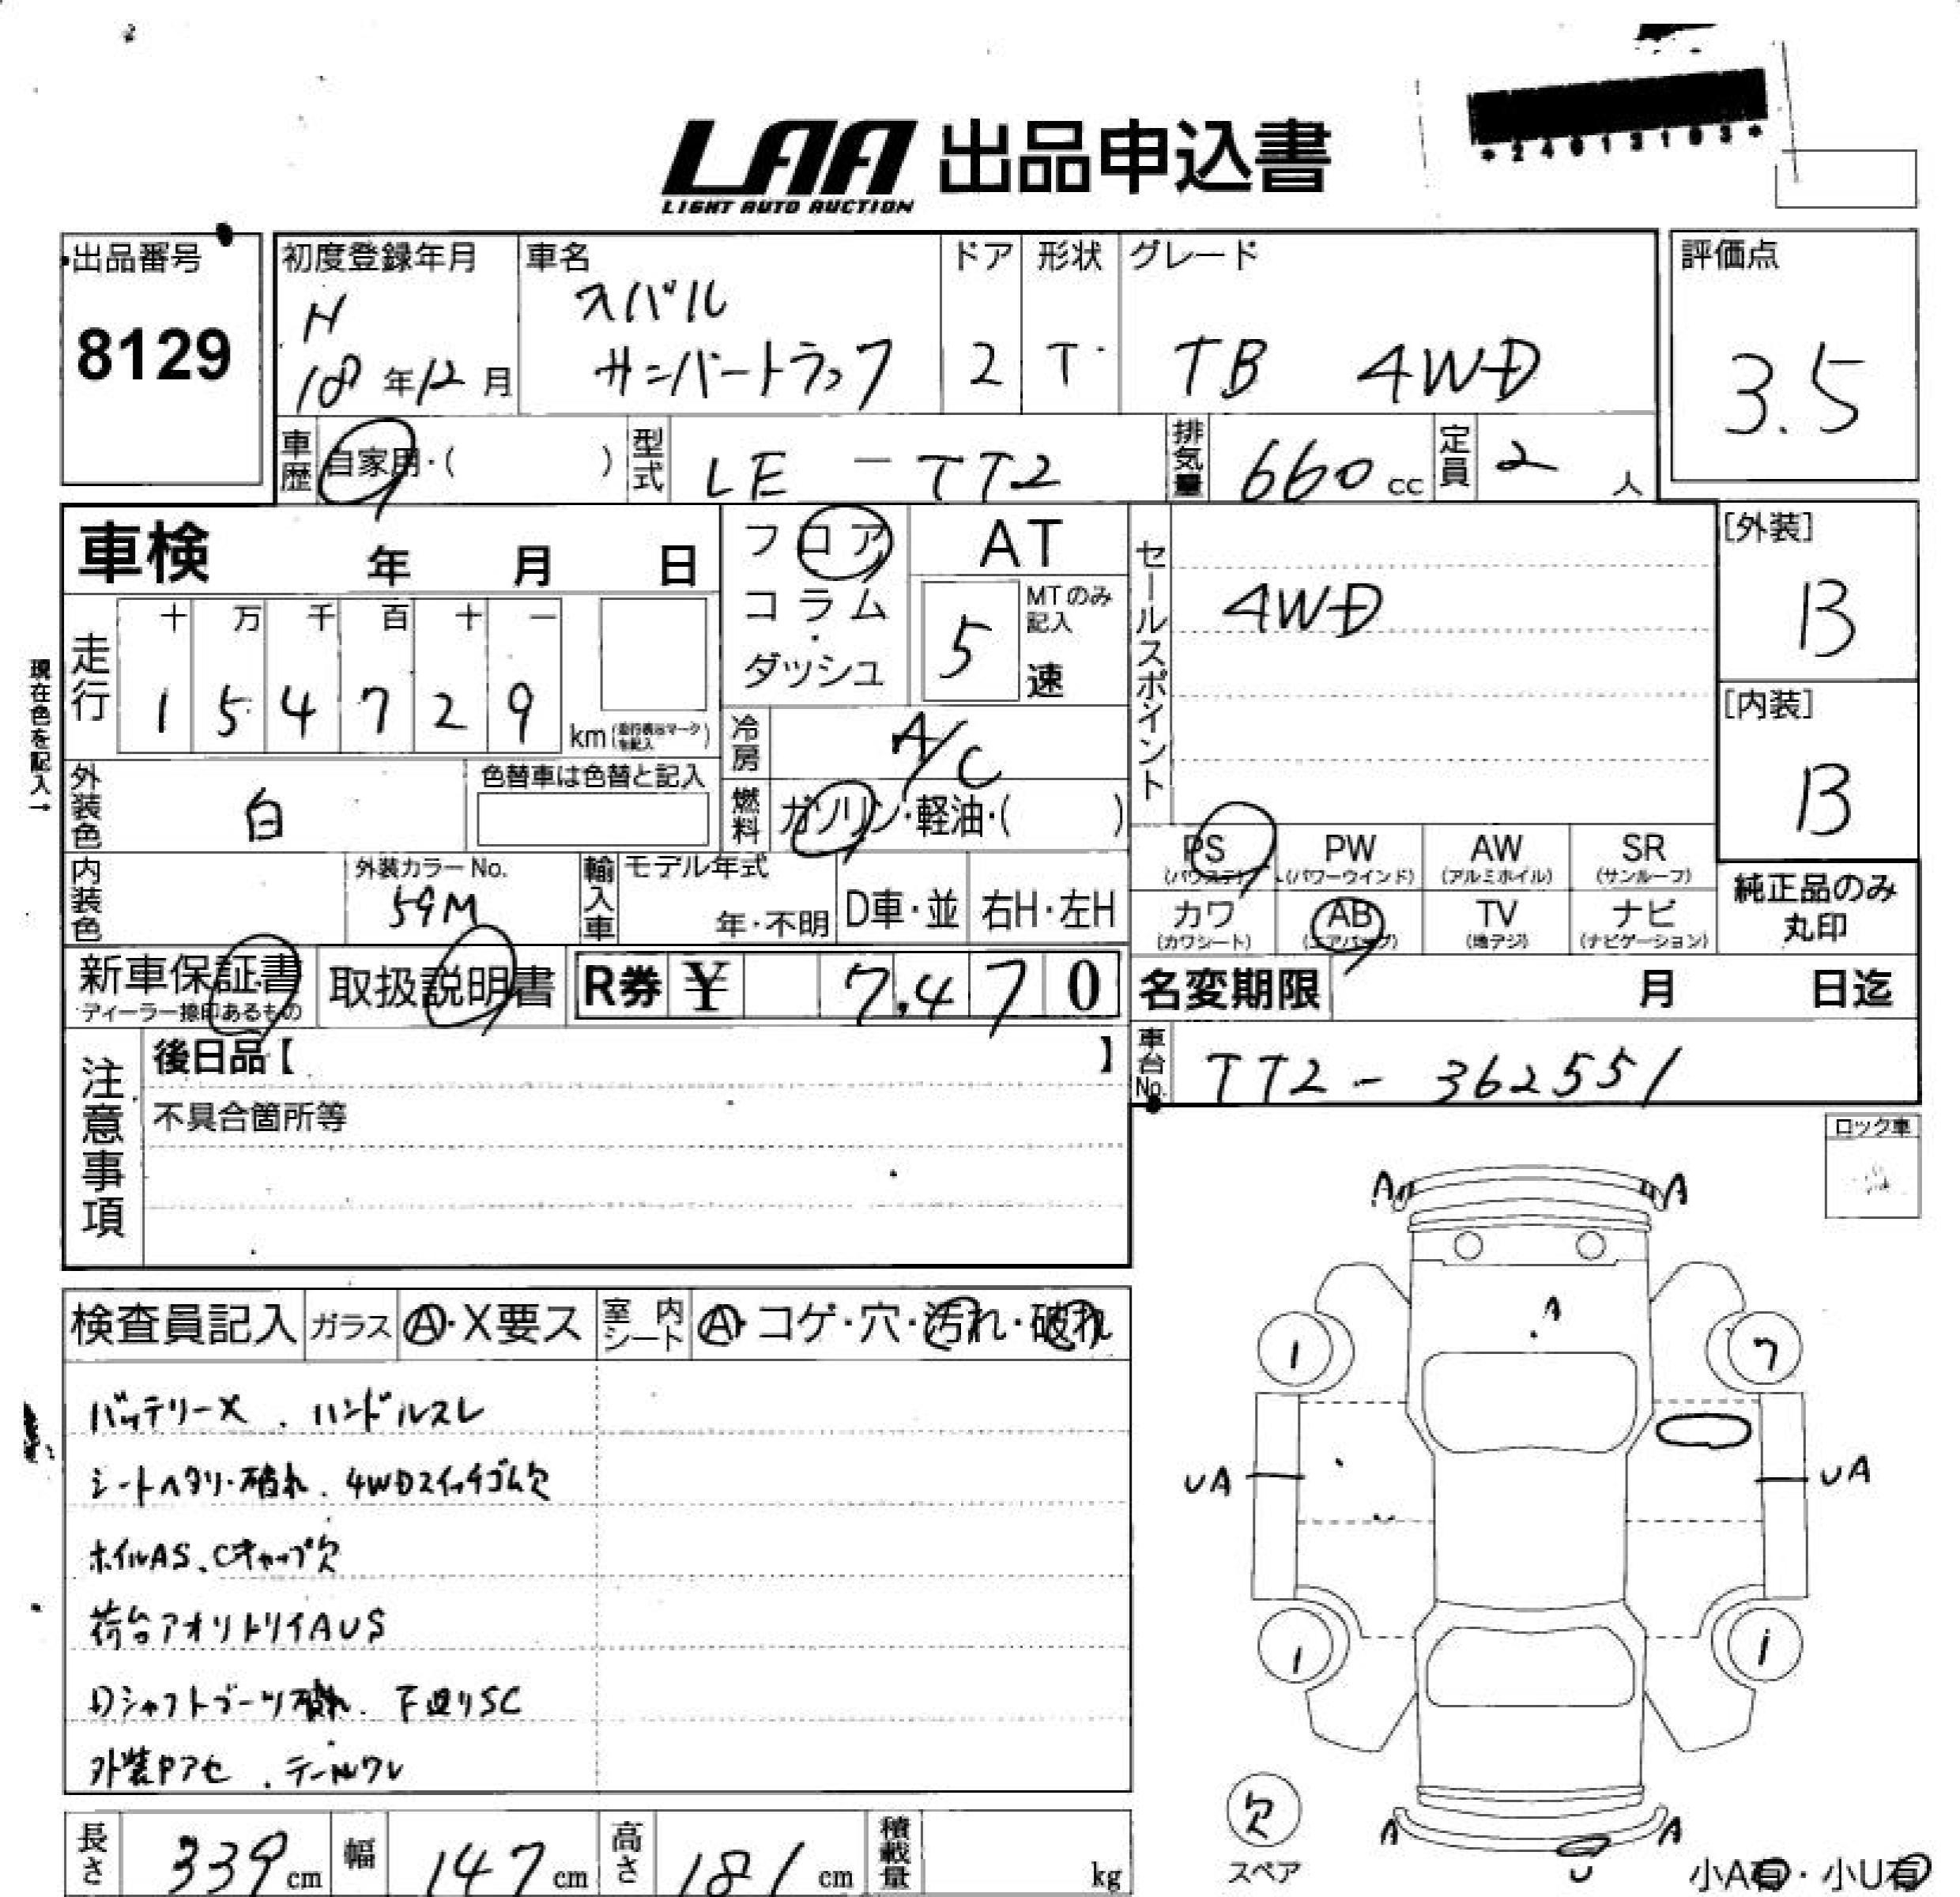 *24012103*
LAA 出品申込書
LIGHT AUTO AUCTION
出品番号
8129
初度登録年月
H
18年12月
車名
スバル
サンバートラック
ドア
2
形状
T
グレード
TB 4WD
評価点
3.5
車歴 自家用・( )
型式 LE-TT2
排気量 660cc
定員 2人
車検 年 月 日
フロア
コラム・
ダッシュ
AT
5 MTのみ記入
速
セールスポイント
4WD
[外装]
B
[内装]
B
現在色を記入→
走行
十 万 千 百 十 一
1 5 4 7 2 9 km
冷房 A/C
外装色 白
色替車は色替と記入
燃料 ガソリン・軽油・( )
PS PW AW SR
(パワステ) (パワーウインド) (アルミホイル) (サンルーフ)
カワ AB TV ナビ
(カワシート) (エアバッグ) (地デジ) (ナビゲーション)
純正品のみ
丸印
内装色
外装カラーNo.
59M
輸入車 モデル年式
年・不明 D車・並 右H・左H
新車保証書
ディーラー捺印あるもの
取扱説明書
R券 ¥ 7,470
名変期限 月 日迄
車台No. TT2-362551
注意事項
後日品【 】
不具合箇所等
ロック車
検査員記入 ガラス A・X要ス 室内シート A・コゲ・穴・汚れ・破れ
バッテリーX、ハンドルスレ
シートヘタリ・破れ、4WDスイッチゴム欠
ホイルAS、Cキャップ欠
荷台アオリトリイAUS
Dシャフトブーツ破れ、下廻りSC
外装タアセ、テールワレ
A A
A
1 7
UA UA
1 1
欠
スペア
A A
U
小A有・小U有
長さ 339cm 幅 147cm 高さ 181cm 積載量 kg